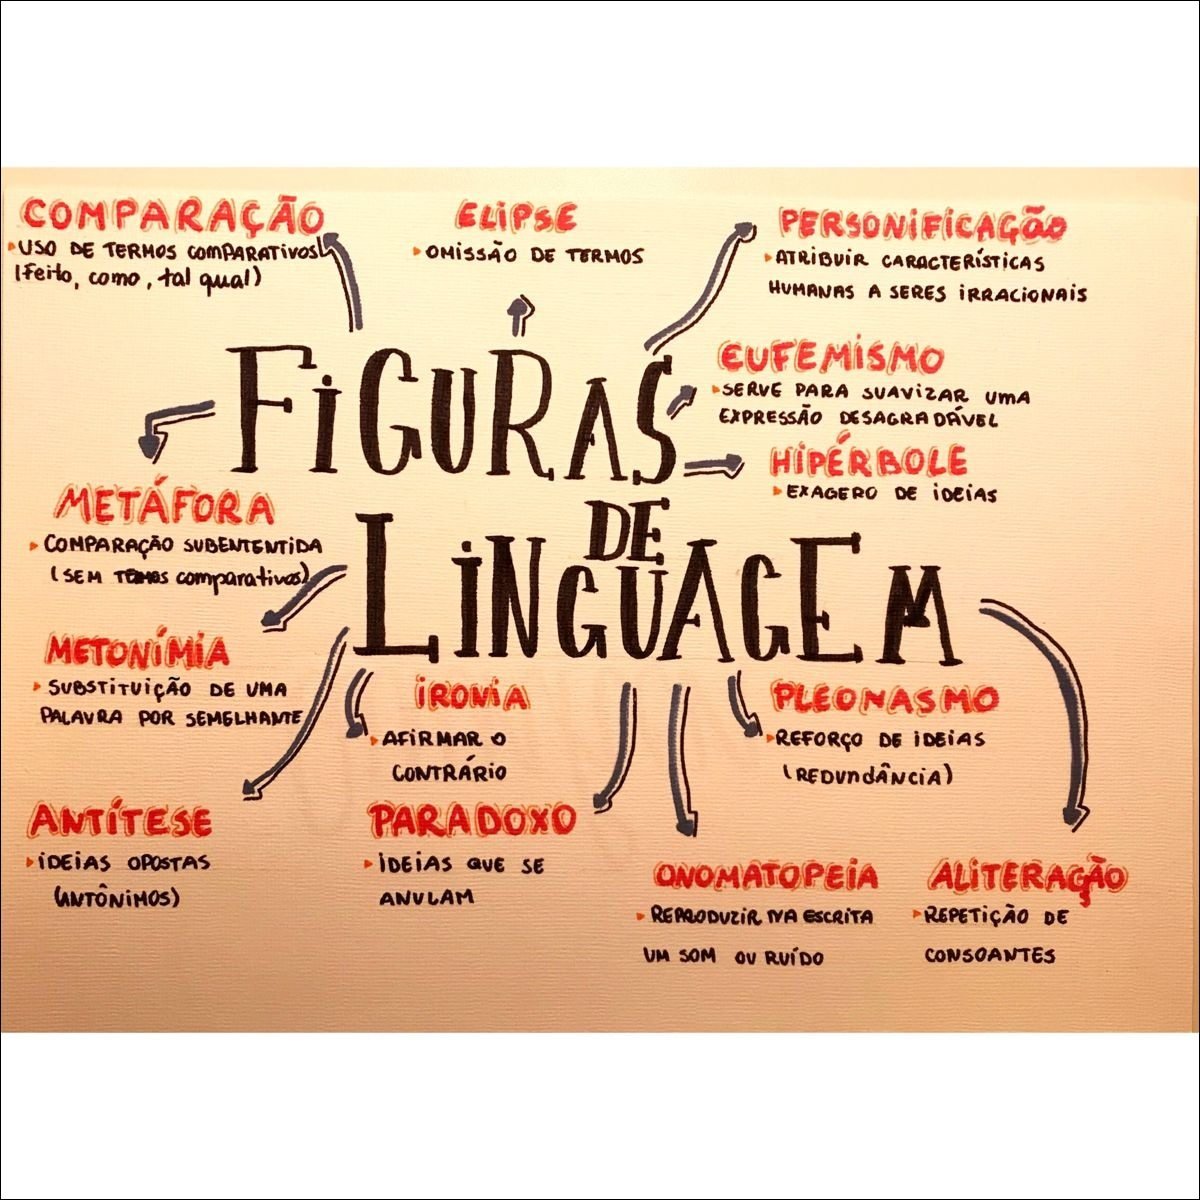 COMPARAÇÃO
USO DE TERMOS COMPARATIVOS
(feito, como, tal qual)
ELIPSE
OMISSÃO DE TERMOS
PERSONIFICAÇÃO
ATRIBUIR CARACTERÍSTICAS
HUMANAS A SERES IRRACIONAIS
EUFEMISMO
SERVE PARA SUAVIZAR UMA
EXPRESSÃO DESAGRADÁVEL
HIPÉRBOLE
EXAGERO DE IDEIAS
FIGURAS
DE
LINGUAGEM
METÁFORA
COMPARAÇÃO SUBENTENTIDA
(SEM TEMOS comparativos)
METONÍMIA
SUBSTITUIÇÃO DE UMA
PALAVRA POR SEMELHANTE
IRONIA
AFIRMAR O
CONTRÁRIO
PLEONASMO
REFORÇO DE IDEIAS
(REDUNDÂNCIA)
ANTÍTESE
IDEIAS OPOSTAS
(ANTÔNIMOS)
PARADOXO
IDEIAS QUE SE
ANULAM
ONOMATOPEIA
REPRODUZIR NA ESCRITA
UM SOM OU RUÍDO
ALITERAÇÃO
REPETIÇÃO DE
CONSOANTES